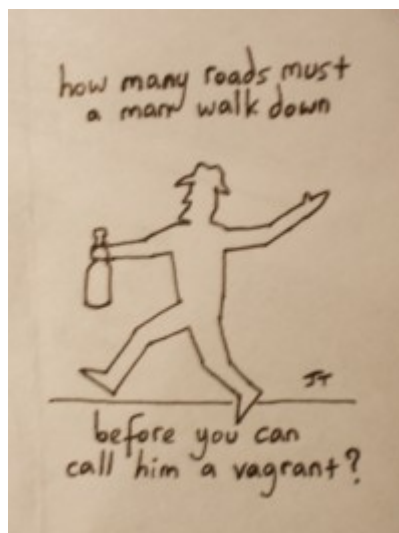 how many roads must
a man walk down
JT
before you can
call him a vagrant?